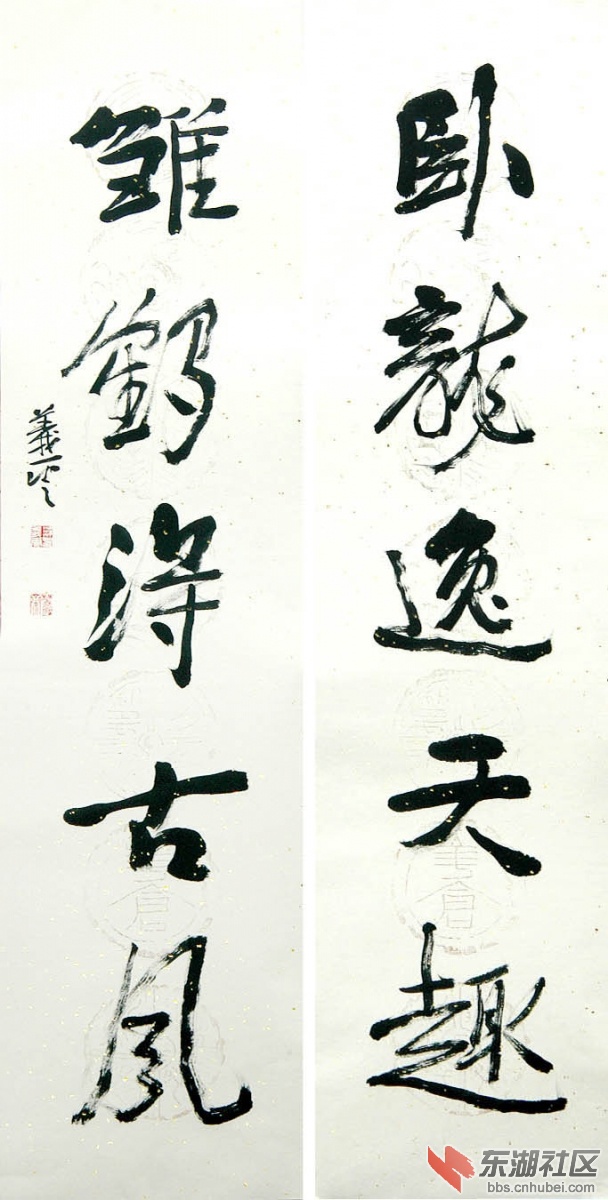 卧龍逸天趣
雏鶴得古风
義
东湖社区
bbs.cnhubei.com